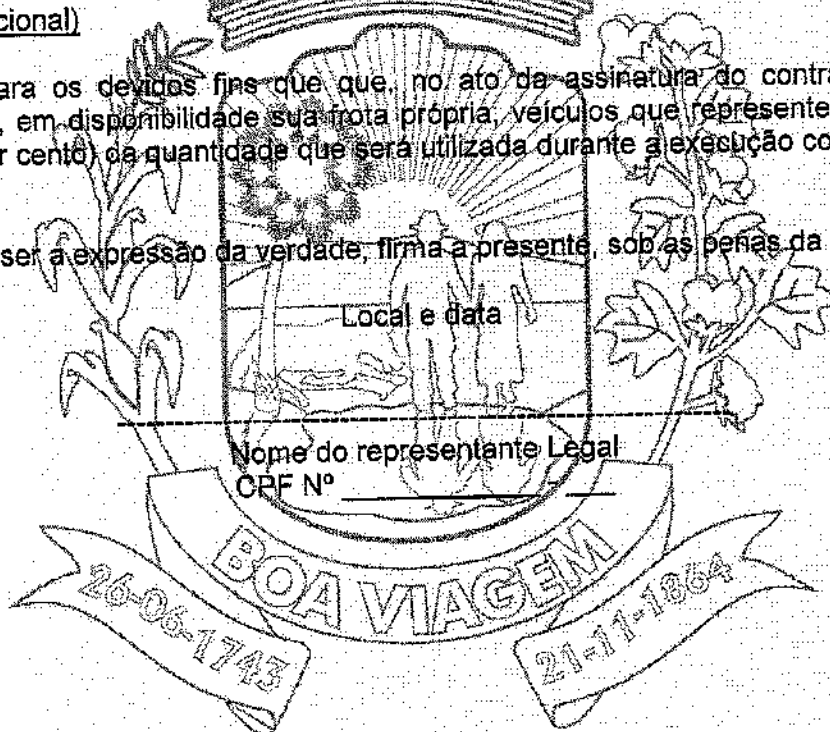 cional)
ara os devidos fins que que, no ato da assinatura do contra
, em disponibilidade sua frota própria, veículos que represente
r cento) da quantidade que será utilizada durante a execução co
ser a expressão da verdade, firma a presente, sob as penas da
Local e data
Nome do representante Legal
CPF Nº ____________ - ___
BOA VIAGEM
26-06-1743
21-11-1864